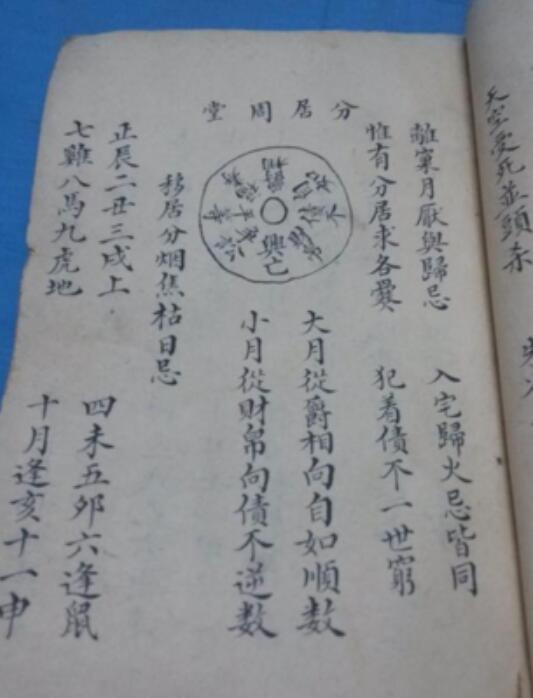 天空受死並頭杀
離窠月厭與歸忌
入宅歸火忌皆同
惟有分居求各爨
犯着債不一世窮
分居周堂
興亡
大月從爵相向自如順数
小月從財帛向債不逆数
移居分烟焦枯日忌
正辰二丑三戌上
四未五夘六逢鼠
七雞八馬九虎地
十月逢亥十一申